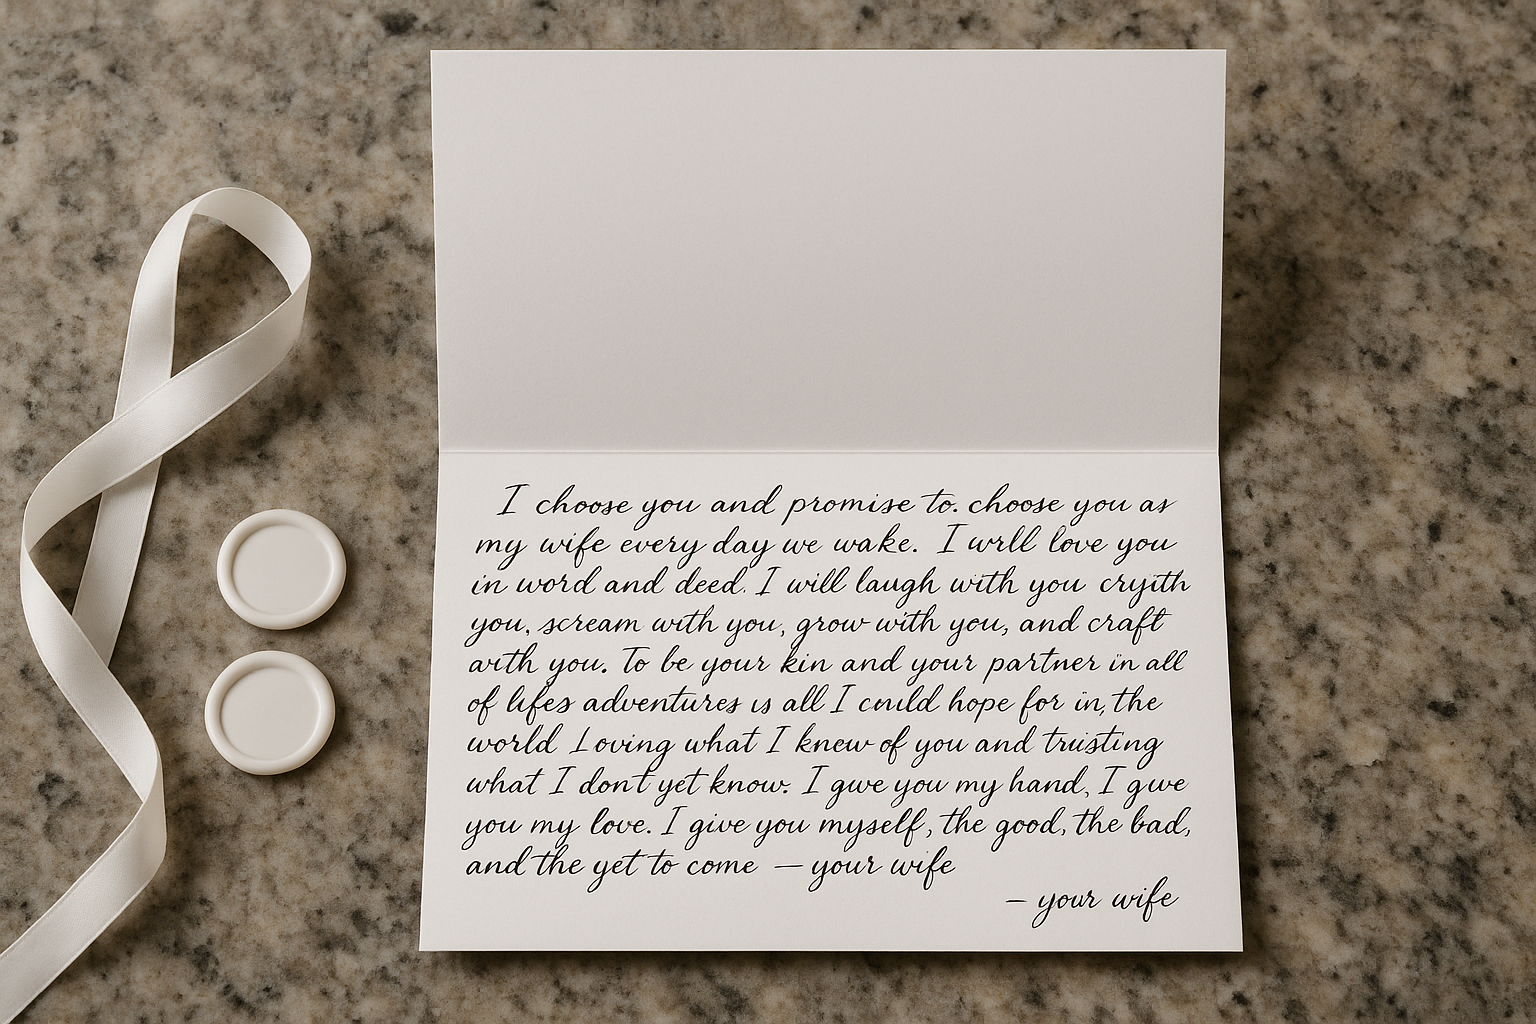 I choose you and promise to. choose you as
my wife every day we wake. I wrll love you
in word and deed. I will laugh with you cryith
you, scream with you, grow with you, and craft
with you. To be your kin and your partner in all
of lifes adventures is all I could hope for in, the
world Loving what I knew of you and truisting
what I don't yet know. I gwe you my hand, I gwe
you my love. I give you myself, the good, the bad,
and the yet to come — your wife
– your wife